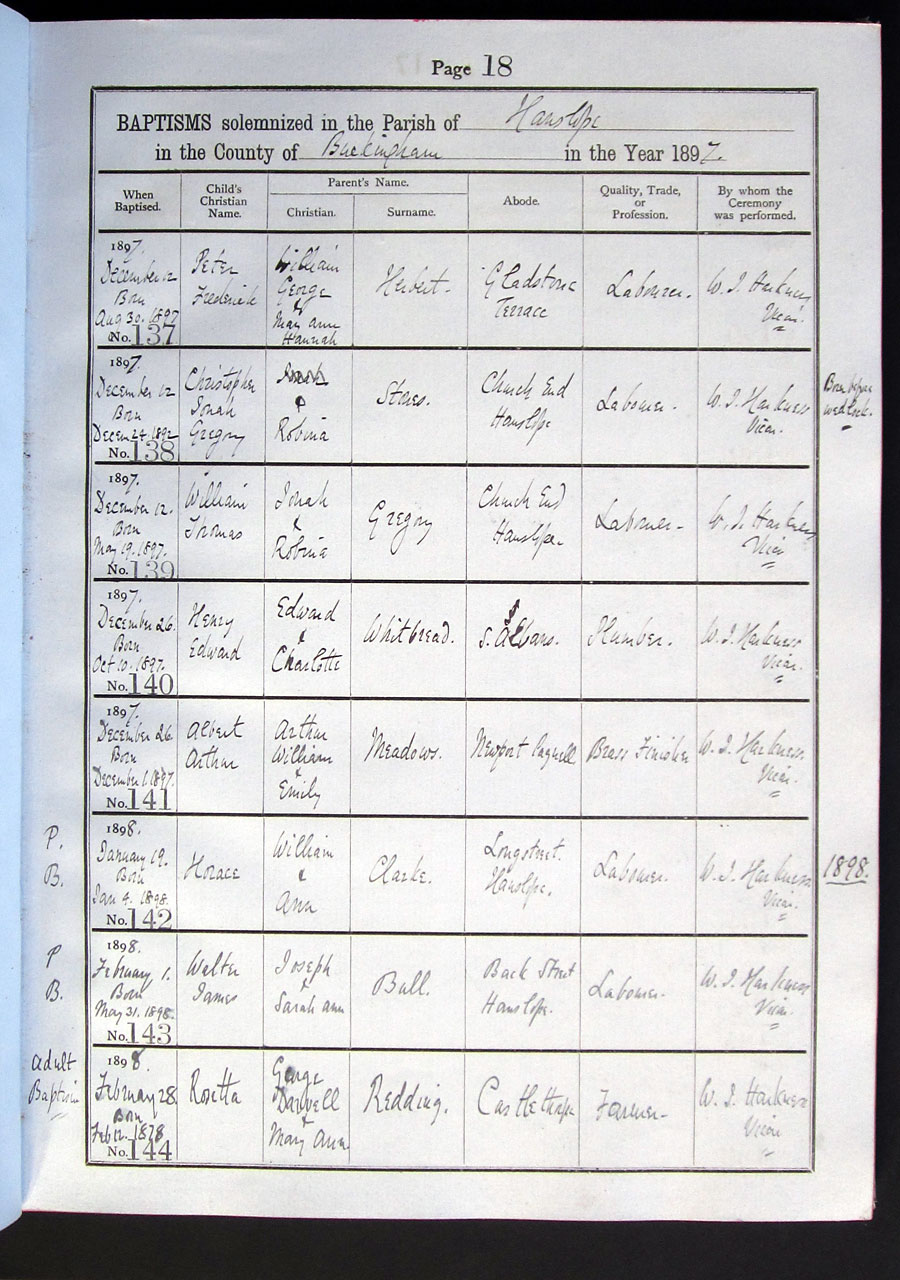 Page 18
BAPTISMS solemnized in the Parish of Hanslope
in the County of Buckingham in the Year 1897.
When Baptised.
Child's Christian Name.
Parent's Name.
Christian.
Surname.
Abode.
Quality, Trade, or Profession.
By whom the Ceremony was performed.
1897.
December 12
Born
Aug 30. 1897
No. 137
Peter
Frederick
William
George
&
Mary Ann
Hannah
Herbert.
Gladstone
Terrace
Labourer.
W. J. Harkness
Vicar.
1897.
December 12
Born
Decem 24. 1892
No. 138
Christopher
Jonah
Gregory
&
Robina
Church End
Hanslope
Labourer.
W. J. Harkness
Vicar.
Born before
wedlock.
1897.
December 12.
Born
May 19. 1897.
No. 139
William
Thomas
Jonah
&
Robina
Gregory
Church End
Hanslope.
Labourer.
W. J. Harkness
Vicar
1897.
December 26.
Born
Oct 10. 1897.
No. 140
Henry
Edward
Edward
&
Charlotte
Whitbread.
S. Albans.
Plumber.
W. J. Harkness
Vicar.
1897.
December 26.
Born
December 1. 1897.
No. 141
Albert
Arthur
Arthur
William
&
Emily
Meadows.
Newport Pagnell
Brass Finisher
W. J. Harkness.
Vicar.
P.
B.
1898.
January 19.
Born
Jan 9. 1898.
No. 142
Horace
William
&
Ann
Clarke.
Longstreet.
Hanslope.
Labourer.
W. J. Harkness
Vicar.
1898.
P
B.
1898.
February 1.
Born
May 31. 1898.
No. 143
Walter
James
Joseph
&
Sarah Ann
Bull.
Back Street
Hanslope.
Labourer.
W. J. Harkness
Vicar.
Adult
Baptism
1898.
February 28
Born
Feb 12. 1878
No. 144
Rosetta
George
Darwell
&
Mary Ann
Redding.
Castlethorpe
Farmer
W. J. Harkness
Vicar